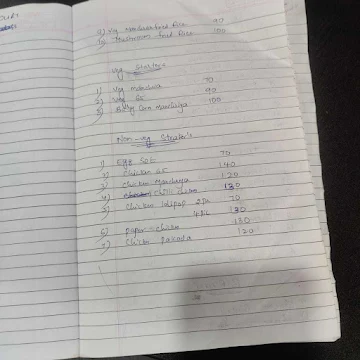 9) Veg Manchurian fried Rice 90
10) Mushroom fried Rice 100
Veg Starters
1) Veg manchuria 70
2) Veg 65 90
3) Baby Corn Manchuriya 100
Non-veg Starter's
1) Egg 65 70
2) Chicken 65 140
3) Chicken Manchurya 120
4) Chilli chicken 130
5) Chicken lolipop 2Pc 70
4Pc 130
6) Paper chicken 130
7) Chicken Pakoda 120